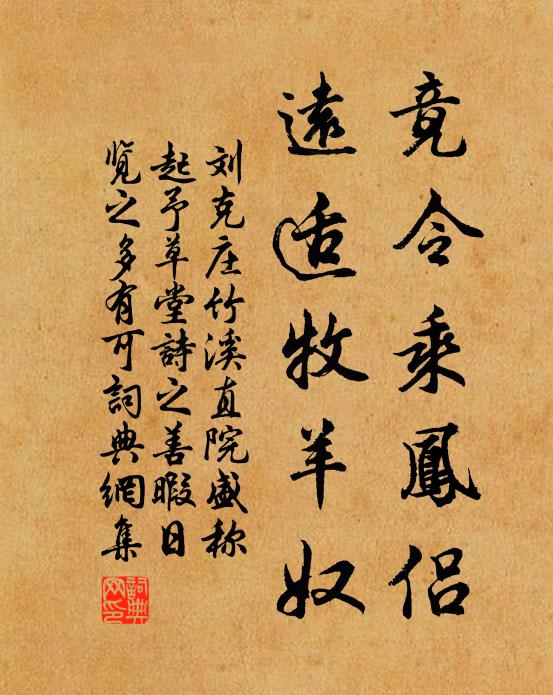 竟令乘鳳侶
遠适牧羊奴
刘克庄竹溪直院盛称
起予草堂詩之善暇日
览之多有可詞典網集
詞典網印